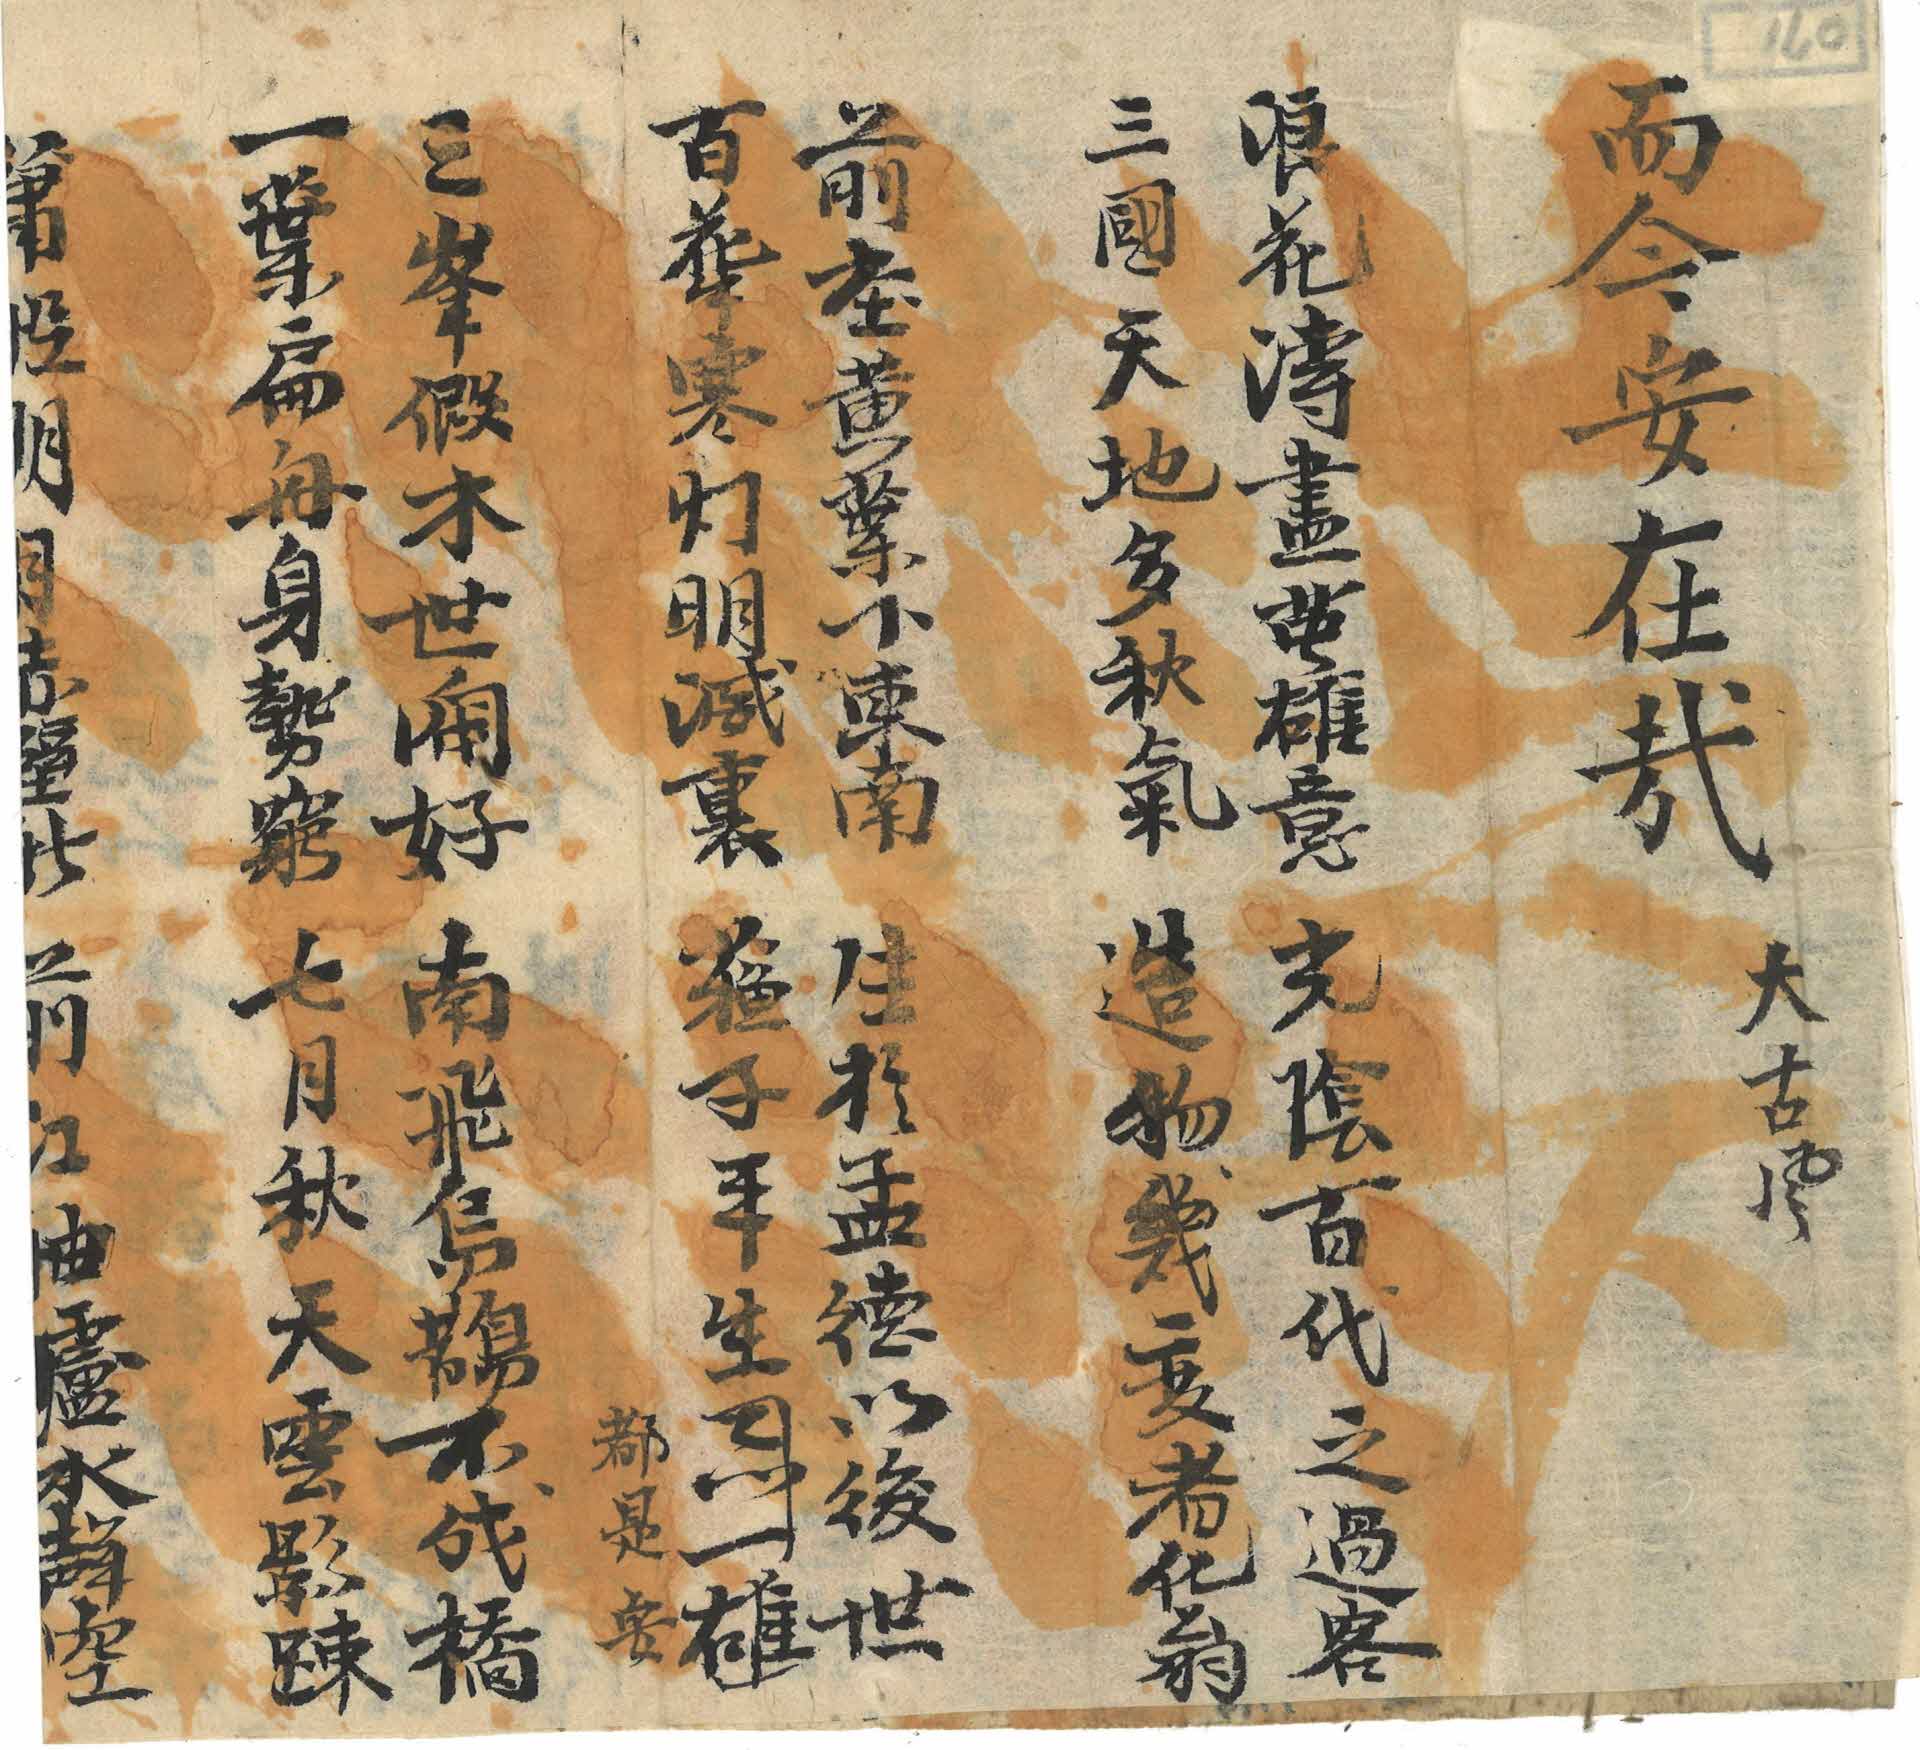 160
而今安在哉 大古风
浪花濤盡英雄意 光陰百代之過客
三國天地多秋氣 造物幾變者化翁
前塗黃葉下東南 生於孟德以後世
百年寒灯明滅裏 蘇子年生 一雄
都是
三峯假木世間好 南飛烏鵲不成橋
一葉扁舟身勢窮 七月秋天雲影疎
明月 前江 蘆水